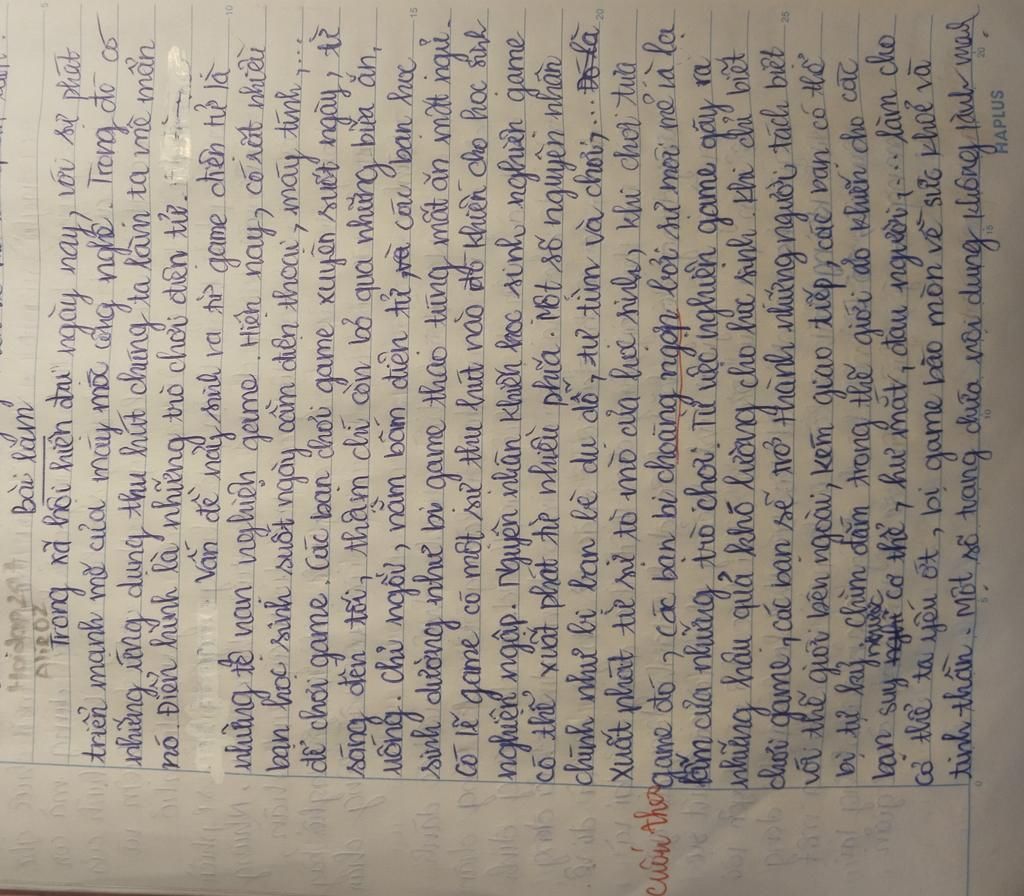 Bài làm
Trong xã hội hiện đại ngày nay, với sự phát
triển mạnh mẽ của máy móc công nghệ, Trong đó có
những ứng dụng thu hút chúng ta làm ta mê mẩn
nó. Điển hình là những trò chơi điện tử.
Vấn đề nảy sinh ra từ game điện tử là
những tệ nạn nghiện game. Hiện nay, có rất nhiều
bạn học sinh suốt ngày cầm điện thoại, máy tính,...
để chơi game. Các bạn chơi game xuyên suốt ngày, từ
sáng đến tối, thậm chí còn bỏ qua những bữa ăn,
uống. Chỉ ngồi, nằm bấm điện tử, và các bạn học
sinh dường như bị game tháo túng mất ăn mất ngủ.
Có lẽ game có một sự thu hút nào đó khiến cho học sinh
nghiện ngập. Nguyên nhân khiến học sinh nghiện game
có thể xuất phát từ nhiều phía. Một số nguyên nhân
chính như bị bạn bè dụ dỗ, tự tìm và chơi,... Đó là
xuất phát từ sự tò mò của học sinh, khi chơi tựa
game đó, các bạn bị choáng ngợp bởi sự mới mẻ lạ lẫm
của những trò chơi. Từ việc nghiện game gây ra
những hậu quả khó lường cho học sinh. Khi chỉ biết
chơi game, các bạn sẽ trở thành những người tách biệt
với thế giới bên ngoài, kém giao tiếp, các bạn có thể
bị tự kỷ, chìm đắm trong thế giới ảo khiến cho các
bạn suy nhược cơ thể, hư mắt, đau người,... làm cho
cơ thể ta yếu ớt, bị game bào mòn về sức khoẻ và
tinh thần. Một số trang chứa nội dung không lành mạnh
cuốn theo
HAPLUS